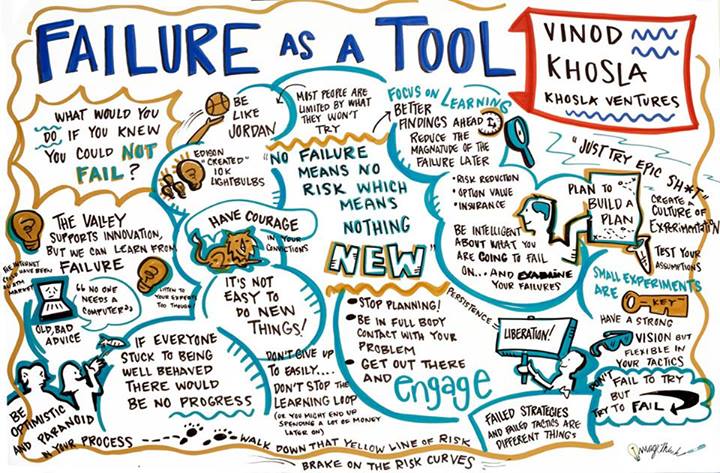 FAILURE AS A TOOL
VINOD
KHOSLA
KHOSLA VENTURES
WHAT WOULD YOU
DO IF YOU KNEW
YOU COULD NOT
FAIL?
BE
LIKE
JORDAN
MOST PEOPLE ARE
LIMITED BY WHAT
THEY WON'T
TRY
FOCUS ON LEARNING
BETTER
FINDINGS AHEAD
REDUCE THE
MAGNATUDE OF THE
FAILURE LATER
• RISK REDUCTION
• OPTION VALUE
• INSURANCE
EDISON
"CREATED"
10K
LIGHTBULBS
"NO FAILURE
MEANS NO
RISK WHICH
MEANS
NOTHING
NEW"
"JUST TRY EPIC SH*T"
PLAN TO
BUILD A
PLAN
CREATE A
CULTURE OF
EXPERIMENTATION
TEST YOUR
ASSUMPTIONS
HAVE COURAGE
IN YOUR
CONVICTIONS
BE INTELLIGENT
ABOUT WHAT YOU
ARE GOING TO FAIL
ON...AND EXAMINE
YOUR FAILURES
THE VALLEY
SUPPORTS INNOVATION,
BUT WE CAN LEARN FROM
FAILURE
THE INTERNET
COULD HAVE BEEN
AN ATM
MARKET
"NO ONE
NEEDS A
COMPUTER"
OLD, BAD
ADVICE
LISTEN TO
YOUR EXPERTS
TOO THOUGH
IT'S NOT
EASY TO
DO NEW
THINGS!
• STOP PLANNING!
• BE IN FULL BODY
CONTACT WITH YOUR
PROBLEM
• GET OUT THERE
AND engage
PERSISTENCE =
LIBERATION!
SMALL EXPERIMENTS
ARE KEY
HAVE A STRONG
VISION BUT
FLEXIBLE IN
YOUR TACTICS
IF EVERYONE
STUCK TO BEING
WELL BEHAVED
THERE WOULD
BE NO PROGRESS
DON'T GIVE UP
TO EASILY....
DON'T STOP THE
LEARNING LOOP
(OR YOU MIGHT END UP
SPENDING A LOT OF MONEY
LATER ON)
DON'T FAIL TO TRY
BUT
TRY TO FAIL
BE
OPTIMISTIC
AND PARANOID
IN YOUR PROCESS
FAILED STRATEGIES
AND FAILED TACTICS ARE
DIFFERENT THINGS
WALK DOWN THAT YELLOW LINE OF RISK
BRAKE ON THE RISK CURVES
ImageThink